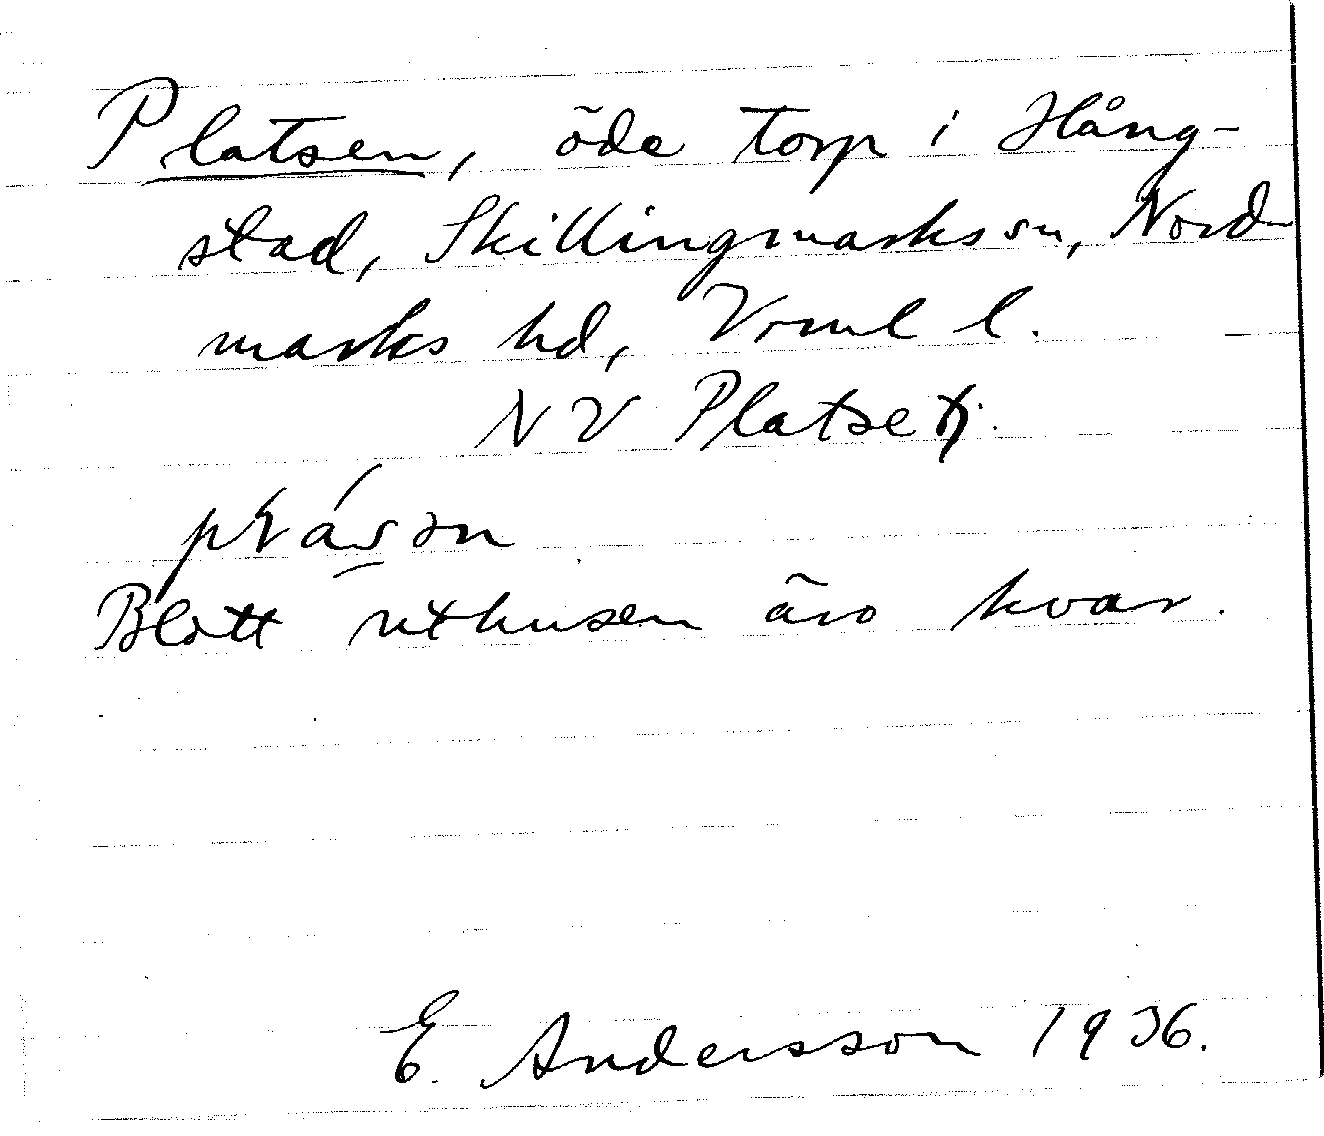 Platsen, öde torp i Hång-
stad, Skillingmarks sn, Nord
marks hd, Vrml l.
NV Platset
Blott uthusen äro kvar.
E. Andersson 1936.